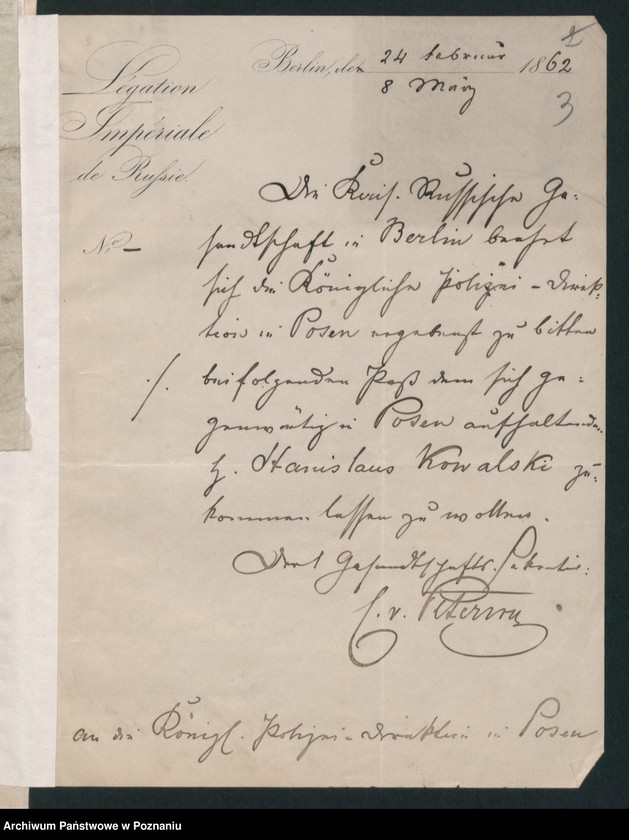 Légation
Impériale
de Russie.
Berlin, den 24 Februar 1862
8 März
3
No –
Die Kais. Russische Ge-
sandtschaft in Berlin beehrt
sich die Königliche Polizei-Direk-
tion in Posen ergebenst zu bitten
./. beifolgenden Paß dem sich ge-
genwärtig in Posen aufhaltenden
H. Stanislaus Kowalski zu-
kommen lassen zu wollen.
Der Gesandtschafts-Sekretär:
C. v. Peterson
An die Königl. Polizei-Direktion in Posen
Archiwum Państwowe w Poznaniu